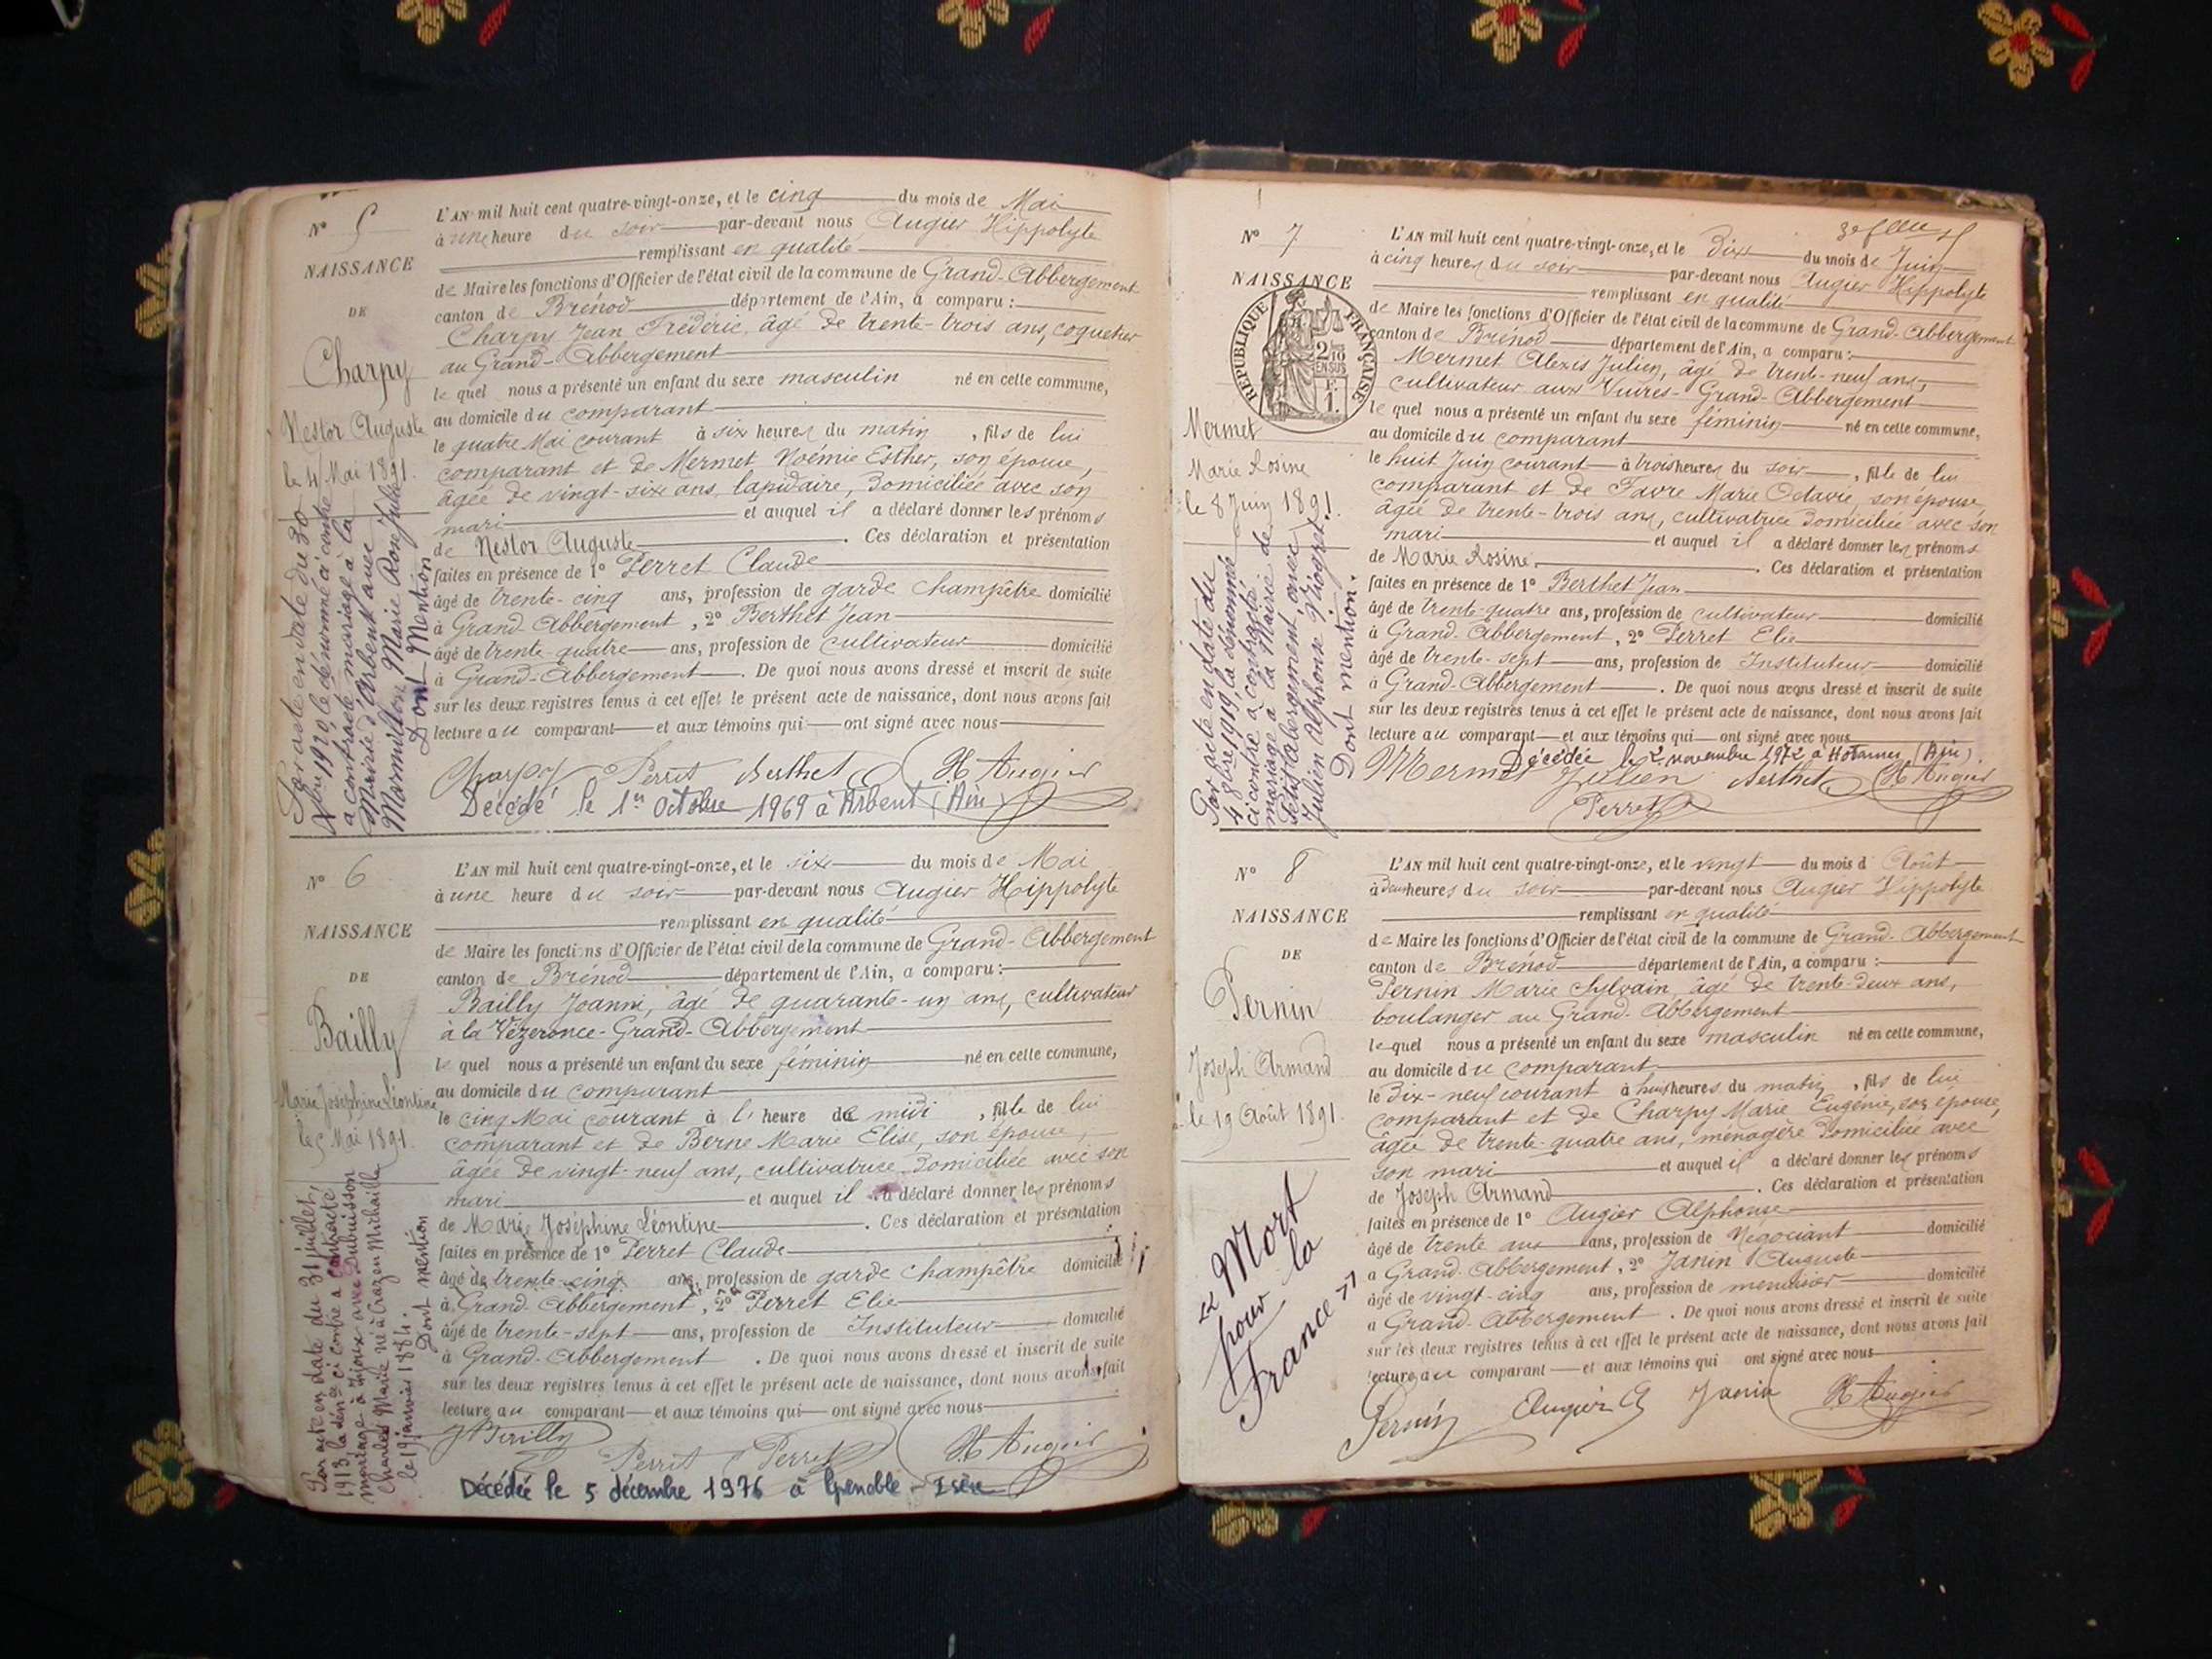 N° 5
NAISSANCE
DE
Charpy
Nestor Auguste
le 4 Mai 1891.
Par acte en date du 30
1920 le dénommé ci contre
a contracté mariage à la
Mairie d'Arbent avec
Marmillon Marie Rose Julie
Dont Mention
L'AN mil huit cent quatre-vingt-onze, et le cinq du mois de Mai
à une heure du soir par-devant nous Augier Hippolyte
remplissant en qualité
de Maire les fonctions d'Officier de l'état civil de la commune de Grand-Abbergement
canton de Brénod département de l'Ain, a comparu :
Charpy Jean Frédéric, âgé de trente-trois ans, coquetier
au Grand-Abbergement
le quel nous a présenté un enfant du sexe masculin né en cette commune,
au domicile du comparant
le quatre Mai courant à six heures du matin , fils de lui
comparant et de Mermet Noémie Esther, son épouse,
âgée de vingt-six ans, lapidaire, domiciliée avec son
mari et auquel il a déclaré donner les prénoms
de Nestor Auguste . Ces déclaration et présentation
faites en présence de 1° Perret Claude
âgé de trente-cinq ans, profession de garde champêtre domicilié
à Grand-Abbergement , 2° Berthet Jean
âgé de trente-quatre ans, profession de cultivateur domicilié
à Grand-Abbergement . De quoi nous avons dressé et inscrit de suite
sur les deux registres tenus à cet effet le présent acte de naissance, dont nous avons fait
lecture au comparant et aux témoins qui ont signé avec nous
Charpy Perret Berthet H. Augier
Décédé le 1er Octobre 1969 à Arbent (Ain)
N° 6
NAISSANCE
DE
Bailly
Marie Joséphine Léontine
le 5 Mai 1891.
Par acte en date du 31 juillet,
1913, la dén ée ci contre a contracté
mariage à Mijoux avec Dubuisson
Charles Marie né à Crazen Mithaille
le 19 janvier 1884.
Dont mention
L'AN mil huit cent quatre-vingt-onze, et le six du mois de Mai
à une heure du soir par-devant nous Augier Hippolyte
remplissant en qualité
de Maire les fonctions d'Officier de l'état civil de la commune de Grand-Abbergement
canton de Brénod département de l'Ain, a comparu :
Bailly Joanni, âgé de quarante-un ans, cultivateur
à la Vézeronce-Grand-Abbergement
le quel nous a présenté un enfant du sexe féminin né en cette commune,
au domicile du comparant
le cinq Mai courant à l' heure de midi , fille de lui
comparant et de Berne Marie Elise, son épouse,
âgée de vingt-neuf ans, cultivatrice domiciliée avec son
mari et auquel il a déclaré donner les prénoms
de Marie Joséphine Léontine . Ces déclaration et présentation
faites en présence de 1° Perret Claude
âgé de trente-cinq ans, profession de garde champêtre domicilié
à Grand-Abbergement , 2° Perret Elie
âgé de trente-sept ans, profession de Instituteur domicilié
à Grand-Abbergement . De quoi nous avons dressé et inscrit de suite
sur les deux registres tenus à cet effet le présent acte de naissance, dont nous avons fait
lecture au comparant et aux témoins qui ont signé avec nous
Bailly Perret Perret H. Augier
Décédée le 5 décembre 1976 à Grenoble - Isère
N° 7
NAISSANCE
RÉPUBLIQUE FRANÇAISE
2/10
EN SUS
1 F.
Mermet
Marie Rosine
le 8 Juin 1891.
Par acte en date du
4 8bre 1919, la dénommée
ci contre à contracté
mariage à la Mairie de
Petit Abergement avec
Julien Alphonse Griogret
Dont mention.
L'AN mil huit cent quatre-vingt-onze, et le dix du mois de Juin
à cinq heures du soir par-devant nous Augier Hippolyte
remplissant en qualité
de Maire les fonctions d'Officier de l'état civil de la commune de Grand-Abbergement
canton de Brénod département de l'Ain, a comparu :
Mermet Alexis Julien, âgé de trente-neuf ans,
cultivateur aux Vuires-Grand-Abbergement
le quel nous a présenté un enfant du sexe féminin né en cette commune,
au domicile du comparant
le huit Juin courant à trois heures du soir , fille de lui
comparant et de Favre Marie Octavie, son épouse,
âgée de trente-trois ans, cultivatrice domiciliée avec son
mari et auquel il a déclaré donner les prénoms
de Marie Rosine . Ces déclaration et présentation
faites en présence de 1° Berthet Jean
âgé de trente-quatre ans, profession de cultivateur domicilié
à Grand-Abbergement , 2° Perret Elie
âgé de trente-sept ans, profession de Instituteur domicilié
à Grand-Abbergement . De quoi nous avons dressé et inscrit de suite
sur les deux registres tenus à cet effet le présent acte de naissance, dont nous avons fait
lecture au comparant et aux témoins qui ont signé avec nous
Décédée le 2 novembre 1972 à Hotonnes (Ain).
Mermet Julien Berthet H. Augier
Perret
N° 8
NAISSANCE
DE
Pernin
Joseph Armand
le 19 Août 1891.
« Mort
pour la
France »
L'AN mil huit cent quatre-vingt-onze, et le vingt du mois d Août
à deux heures du soir par-devant nous Augier Hippolyte
remplissant en qualité
de Maire les fonctions d'Officier de l'état civil de la commune de Grand-Abbergement
canton de Brénod département de l'Ain, a comparu :
Pernin Marie Sylvain, âgé de trente-deux ans,
boulanger au Grand-Abbergement
le quel nous a présenté un enfant du sexe masculin né en cette commune,
au domicile du comparant
le dix-neuf courant à huit heures du matin , fils de lui
comparant et de Charpy Marie Eugénie, son épouse,
âgée de trente-quatre ans, ménagère domiciliée avec
son mari et auquel il a déclaré donner les prénoms
de Joseph Armand . Ces déclaration et présentation
faites en présence de 1° Augier Alphonse
âgé de trente ans ans, profession de Négociant domicilié
à Grand-Abbergement , 2° Janin Auguste
âgé de vingt-cinq ans, profession de menuisier domicilié
à Grand-Abbergement . De quoi nous avons dressé et inscrit de suite
sur les deux registres tenus à cet effet le présent acte de naissance, dont nous avons fait
lecture au comparant et aux témoins qui ont signé avec nous
Pernin Augier A Janin H. Augier